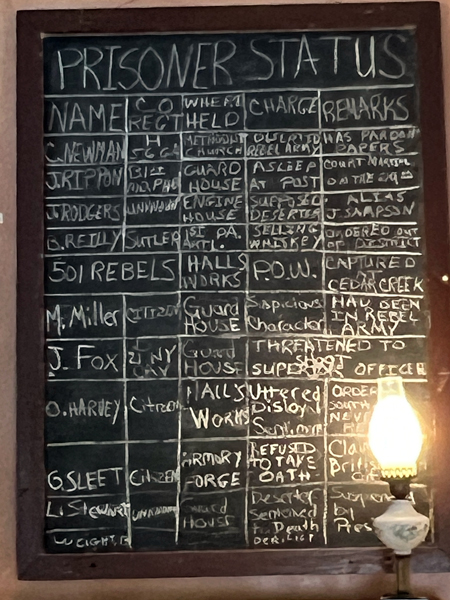 PRISONER STATUS
NAME CO REGT WHERE HELD CHARGE REMARKS
C. NEWMAN H 5 METHODIST CHURCH DESERTED REBEL ARMY HAS PARDON PAPERS
J. RIPPON GUARD HOUSE ASLEEP AT POST COURT MARTIAL ON THE
J. RODGERS UNKNOWN ENGINE HOUSE SUPPOSED DESERTER ALIAS J. SAMPSON
B. REILLY SUTLER 1ST PA. ARTL. SELLING WHISKEY ORDERED OUT OF DISTRICT
501 REBELS HALLS WORKS P.O.W. CAPTURED AT CEDAR CREEK
M. Miller CITIZEN Guard HOUSE Suspicious Character HAD BEEN IN REBEL ARMY
J. FOX 21 NY CAV Guard HOUSE THREATENED TO SHOOT SUPERIOR OFFICER
O. HARVEY Citizen HALL'S WORKS Uttered Disloyal Sentiment ORDER SOUTH
G. SLEET Citizen ARMORY FORGE REFUSED TO TAKE OATH
L. Stewart UNKNOWN Guard HOUSE Deserter Sentenced to Death by
DERILICT